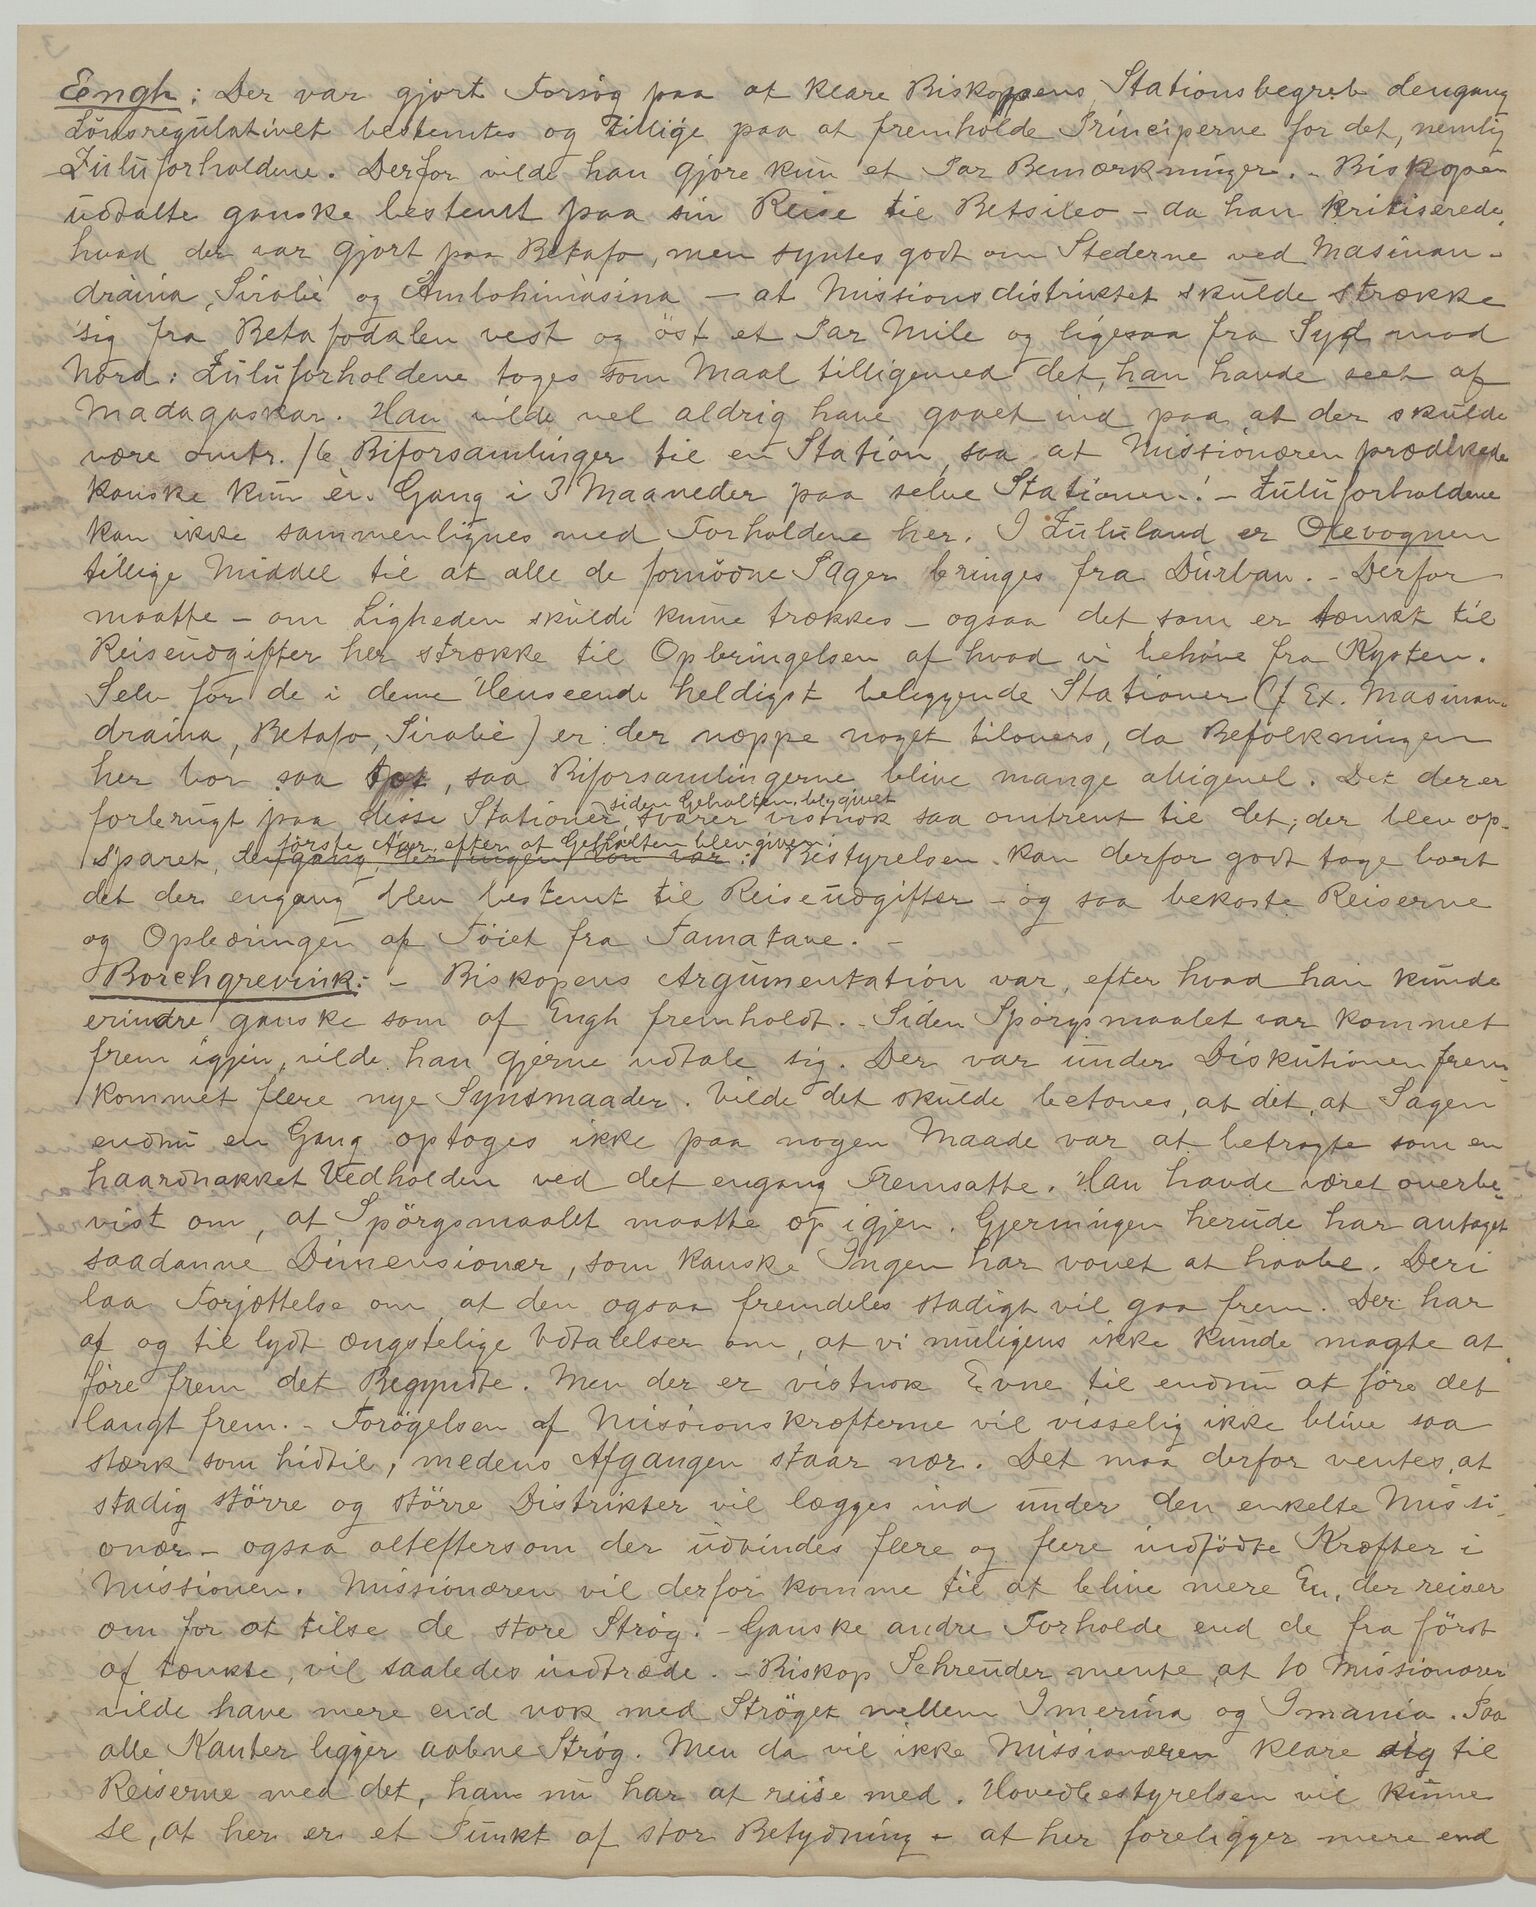 Engh: Der var gjort Forsøg paa at klare Biskoppens Stationsbegreb dengang
Lönsregulativet bestemtes og tillige paa at fremholde Principerne for det, nemlig
Zuluforholdene. Derfor vilde han gjøre kun et Par Bemærkninger. - Biskopen
udtalte ganske bestemt paa sin Reise til Betsileo - da han kritiserede,
hvad der var gjort paa Betafo, men syntes godt om Stederne ved Masinan-
draina, Sirabè og Ambohimasina - at Missionsdistriktet skulde strække
sig fra Betafodalen vest og öst et Par Mile og ligesaa fra Syd mod
Nord: Zuluforholdene toges som Maal tilligemed det, han havde seet af
Madagaskar. Han vilde vel aldrig have gaaet ind paa at der skulde
være omtr. 16 Biforsamlinger til en Station, saa at Missionæren prædikede
kanske kun èn Gang i 3 Maaneder paa selve Stationen! - Zuluforholdene
kan ikke sammenlignes med Forholdene her. I Zululand er Oxevognen
tillige Middel til at alle de fornödne Sager bringes fra Durban. - Derfor
maatte - om Ligheden skulde kunne trækkes - ogsaa det som er tænkt til
Reiseudgifter her strække til Opbringelsen af hvad vi behöve fra Kysten.
Selv for de i denne Henseende heldigst beliggende Stationer (f. Ex. Masinan-
draina, Betafo, Sirabè) er der næppe noget tilovers, da Befolkningen
her bor saa tæt, saa Biforsamlingerne blive mange alligevel. Det der er
forbrugt paa disse Stationer siden Gehalten blev givet svarer vistnok saa omtrent til det, der blev op-
sparet, dengang der ingen Lön var förste Aar efter at Gehalten blev given: Bestyrelsen kan derfor godt tage bort
det der engang blev bestemt til Reiseudgifter - og saa bekoste Reiserne
og Opbæringen af Töiet fra Tamatave. -
Borchgrevink: - Biskopens Argumentation var, efter hvad han kunde
erindre ganske som af Engh fremholdt. - Siden Spörgsmaalet var kommet
frem igjen, vilde han gjerne udtale sig. Der var under Diskutionen frem-
kommet flere nye Synsmaader. Vilde det skulde betones, at det, at Sagen
endnu en Gang optoges ikke paa nogen Maade var at betragte som en
haardnakket Vedholden ved det engang Fremsatte. Han havde været overbe-
vist om, at Spörgsmaalet maatte op igjen. Gjerningen herude har antaget
saadanne Dimensioner, som kanske Ingen har vovet at haabe. Deri
laa Forjættelse om, at den ogsaa fremdeles stadigt vil gaa frem. Der har
af og til lydt ængstelige Udtalelser om, at vi muligens ikke kunde magte at
före frem det Begyndte. Men der er vistnok Evne til endnu at före det
langt frem. - Forögelsen af Missionskræfterne vil visselig ikke blive saa
stærk som hidtil, medens Afgangen staar nær. Det maa derfor ventes, at
stadig större og större Distrikter vil lægges ind under den enkelte Missi-
onær - ogsaa alteftersom der udvindes flere og flere indfödte Kræfter i
Missionen. Missionæren vil derfor komme til at blive mere En, der reiser
om for at tilse de store Strög. - Ganske andre Forholde end de fra först
af tænkte, vil saaledes indtræde. - Biskop Schreuder mente at 10 Missionærer
vilde have mere end nok med Ströget mellem Imerina og Imania. Paa
alle Kanter ligger aabne Strög. Men da vil ikke Missionæren klare sig til
Reiserne med det, han nu har at reise med. Hovedbestyrelsen vil kunne
se, at her er et Punkt af stor Betydning - at her foreligger mere end